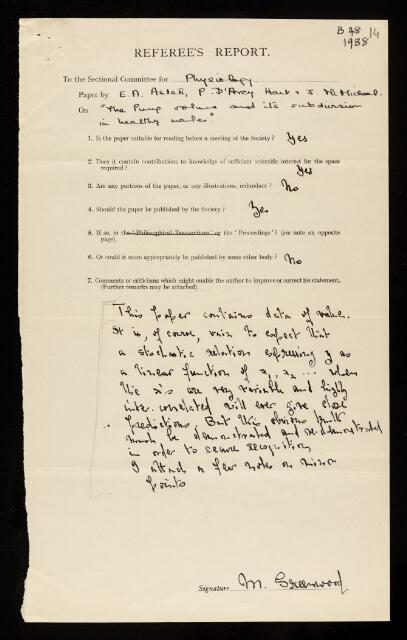 B 48 /14
1938
REFEREE'S REPORT.
To the Sectional Committee for Physiology.
Paper by E. A. Aslett, P. D'Arcy Hart & J. McMichael.
On "The lung volume and its subdivision
in healthy males."
1. Is the paper suitable for reading before a meeting of the Society? Yes
2. Does it contain contributions to knowledge of sufficient scientific interest for the space
required? Yes
3. Are any portions of the paper, or any illustrations, redundant? No
4. Should the paper be published by the Society? Yes
5. If so, in the 'Philosophical Transactions' or the 'Proceedings'? (see note on opposite
page).
6. Or could it more appropriately be published by some other body? No
7. Comments or criticisms which might enable the author to improve or correct his statement.
(Further remarks may be attached).
This paper contains data of value.
It is, of course, vain to expect that
a stochastic relation expressing y as
a linear function of x1, x2 ... when
the x's are very variable and highly
inter-correlated will ever give close
predictions. But this obvious truth
must be demonstrated and re-demonstrated
in order to secure recognition
I attach a few notes on minor
points
Signature M. Greenwood